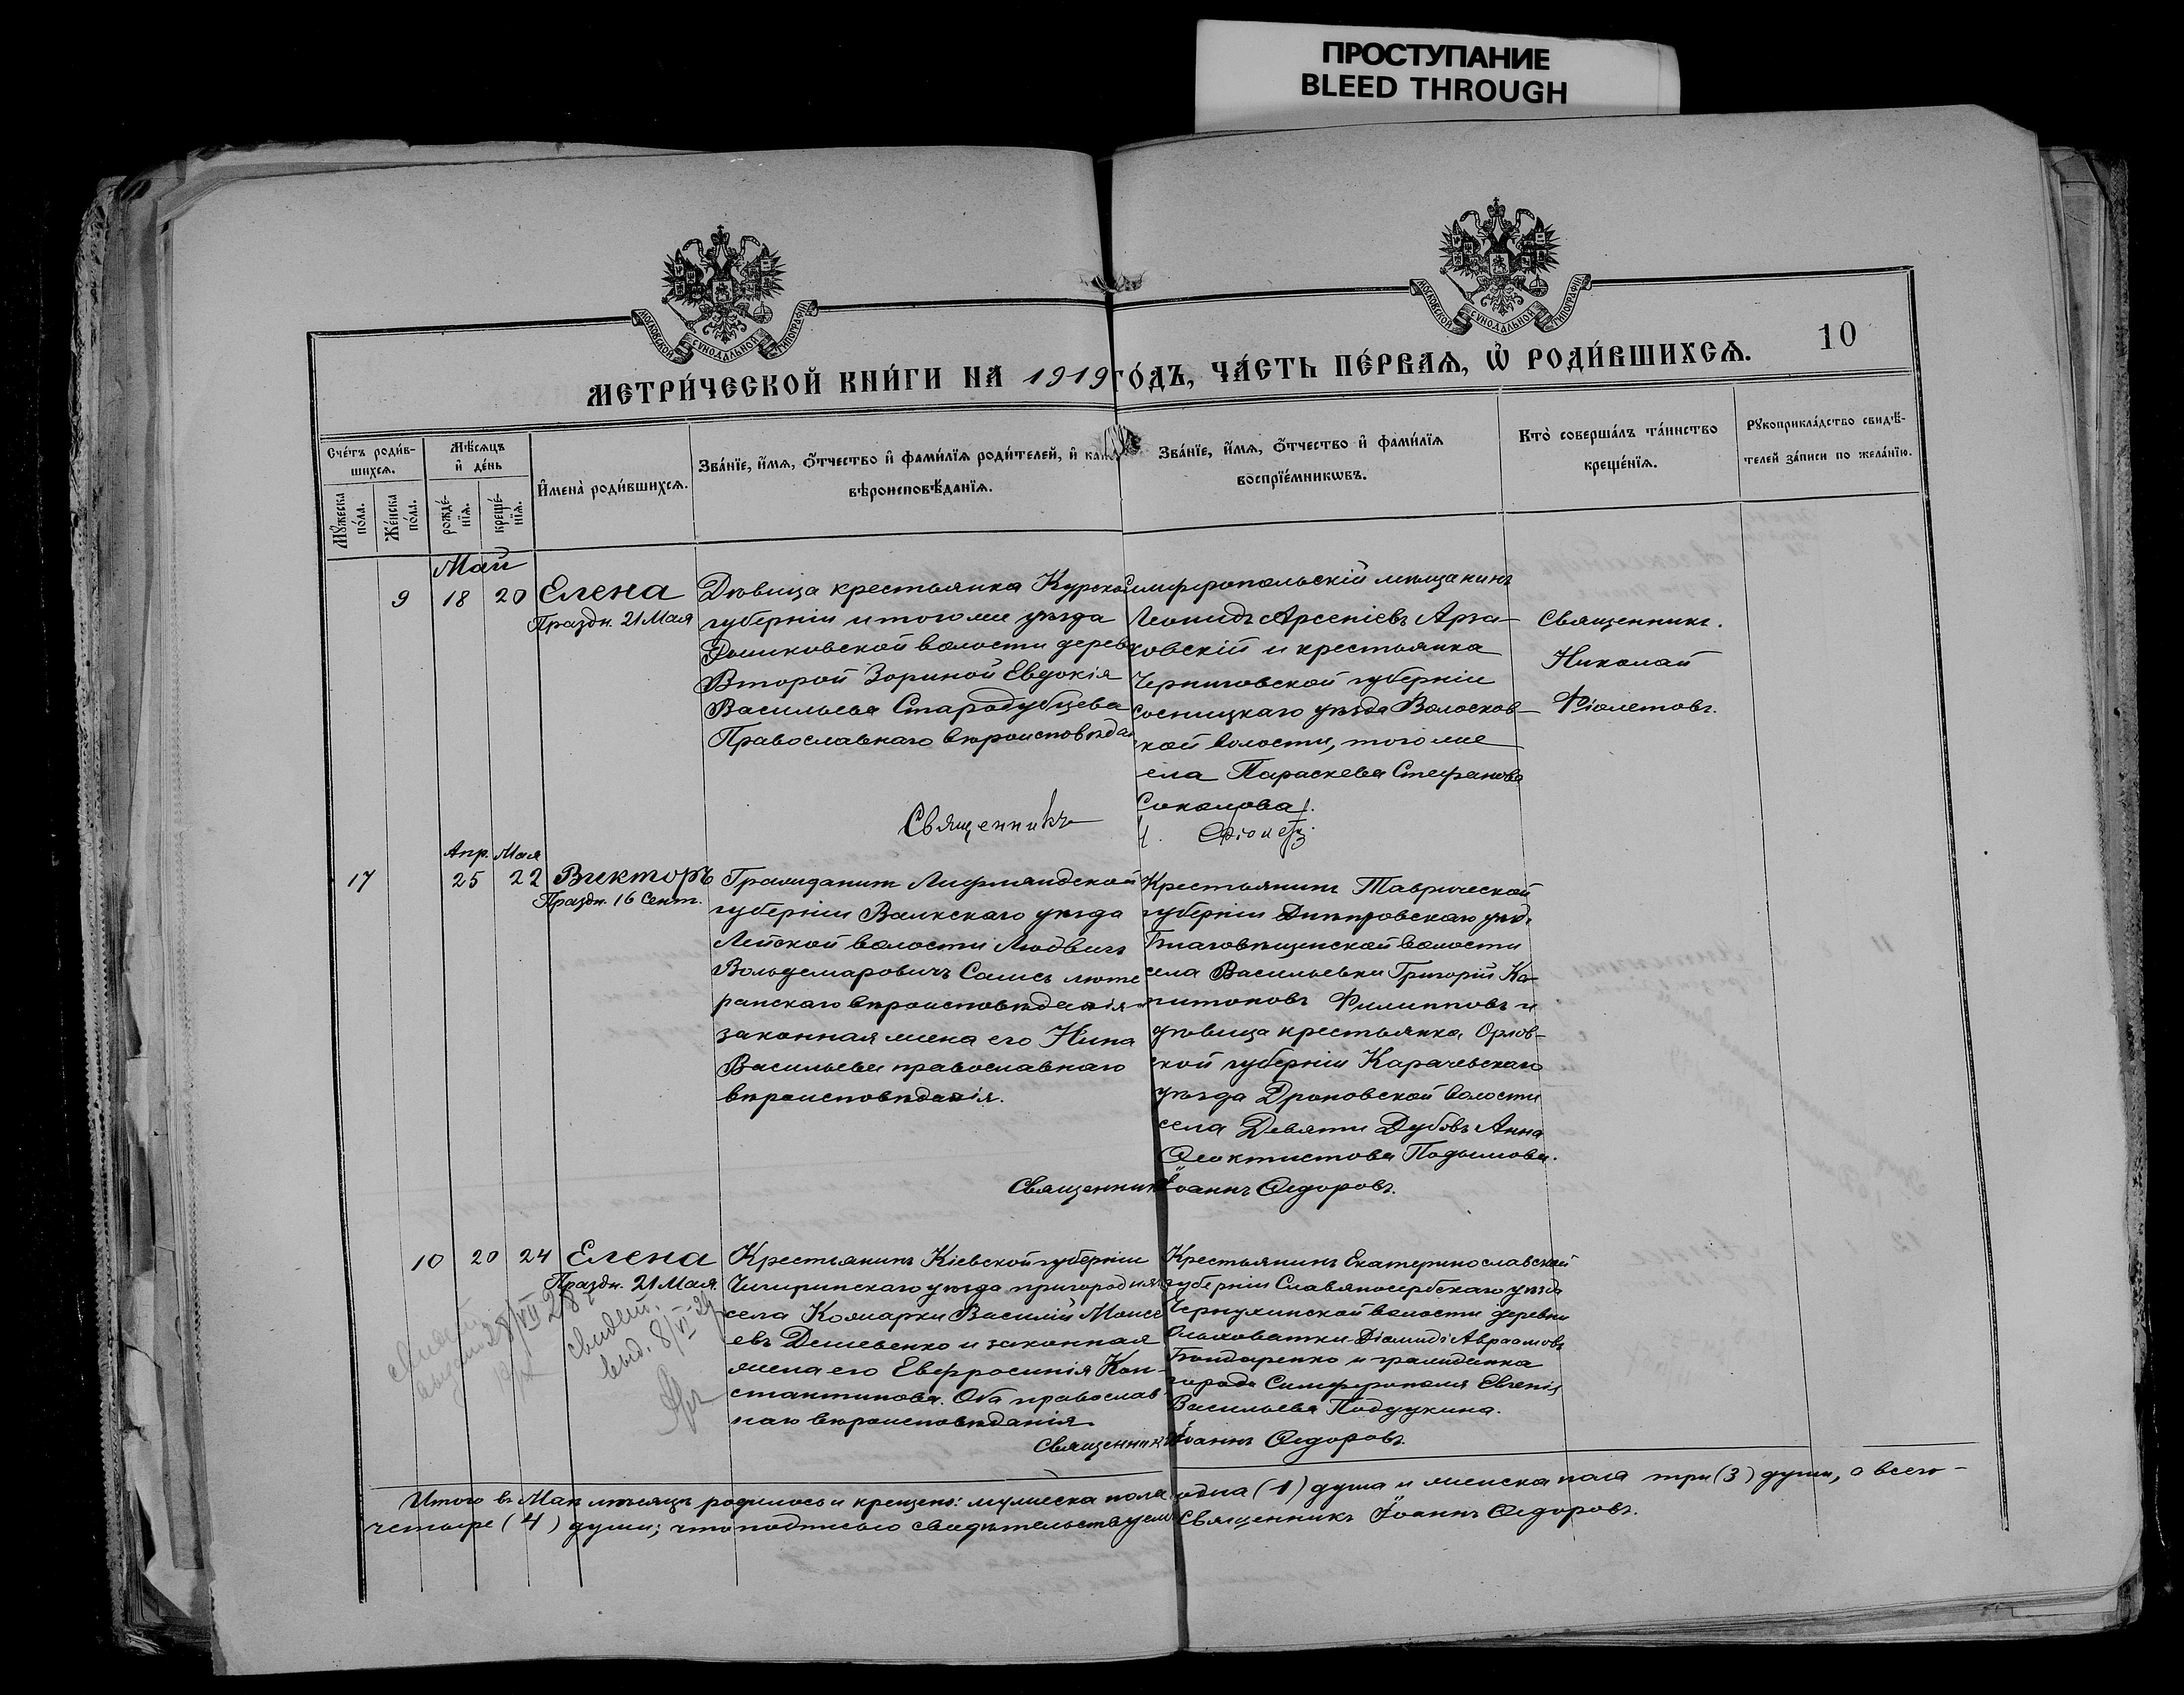 ПРОСТУПАНИЕ
BLEED THROUGH
МОСКОВСКОЙ СѴНОДАЛЬНОЙ ТИПОГРАФІИ
МОСКОВСКОЙ СѴНОДАЛЬНОЙ ТИПОГРАФІИ
10
МЕТРИ́ЧЕСКОЙ КНИ́ГИ НА 1919 ГО́ДЪ, ЧА́СТЬ ПЕ́РВАѦ, Ѡ҆ РОДИ́ВШИХСѦ.
Сче́тъ роди́в-
шихсѧ.
Мѣ́сѧцъ
и҆ де́нь
И҆мена̀ роди́вшихсѧ.
Зва́нїе, и҆́мѧ, ѻ҆́тчество и҆ фами́лїѧ роди́телей, и҆
вѣроисповѣ́данїѧ.
Зва́нїе, и҆́мѧ, ѻ҆́тчество и҆ фами́лїѧ
воспрїе́мникѡвъ.
Кто̀ соверша́лъ та́инство
креще́нїѧ.
Рꙋкоприкла́дство свидѣ́-
телей за́писи по жела́нїю.
Мꙋ́жеска
по́ла.
Же́нска
по́ла.
рожде́-
нїѧ.
креще́-
нїѧ.
Май
9 18 20 Елена
Праздн. 21 Мая
Дѣвица крестьянка Курской
губерніи и того же уѣзда
волости дерев
Второй Зориной Евдокія
Васильева Стародубцева
Православнаго вѣроисповѣда
имферопольскій мѣщанинъ
Леонидъ Арсеніевъ Арза-
ковскій и крестьянка
Черниговской губерніи
Сосницкаго уѣзда Волосков-
кой волости, того же
ела Параскева Стефанова
Соколова.
Священникъ.
Николай
Фіолетовъ.
Священникъ
Апр. Мая
17 25 22 Викторъ
Праздн. 16 Сент.
Гражданинъ Лифляндской
губерніи Валкскаго уѣзда
Лейской волости Людвигъ
Вольдемаровичъ Саксъ люте
ранскаго вѣроисповѣданія и
законная жена его Нина
Васильева православнаго
вѣроисповѣданія.
Крестьянинъ Таврической
губерніи Днѣпровскаго уѣзд.
Благовѣщенской волости
села Васильевки Григорій Ка-
питоновъ Филипповъ и
дѣвица крестьянка Орлов-
ской губерніи Карачевскаго
уѣзда Дроновской волости
села Девяти Дубовъ Анна
Ѳеоктистова Подымова.
Священникъ Іоаннъ Ѳедоровъ.
10 20 24 Елена
Праздн. 21 Мая.
Крестьянинъ Кіевской губерніи
Чигиринскаго уѣзда пригородня
села Комарки Василій Моисе
евъ Дешевенко и законная
жена его Евфросинія Кон-
стантинова. Оба православ
наго вѣроисповѣданія.
Крестьянинъ Екатеринославской
губерніи Славяносербскаго уѣзда
Чернухинской волости деревни
Ольховатки Діомидъ Авраамовъ
Бондаренко и гражданка
города Симферополя Евгенія
Васильева Подукина.
Священникъ Іоаннъ Ѳедоровъ.
свидѣт.
выд. 8/VI 29
Итого въ Маѣ мѣсяцѣ родилось и крещено: мужеска пола одна (1) душа и женска пола три (3) души, а всего
четыре (4) души; что подписью свидѣтельствуемъ Священникъ Іоаннъ Ѳедоровъ.